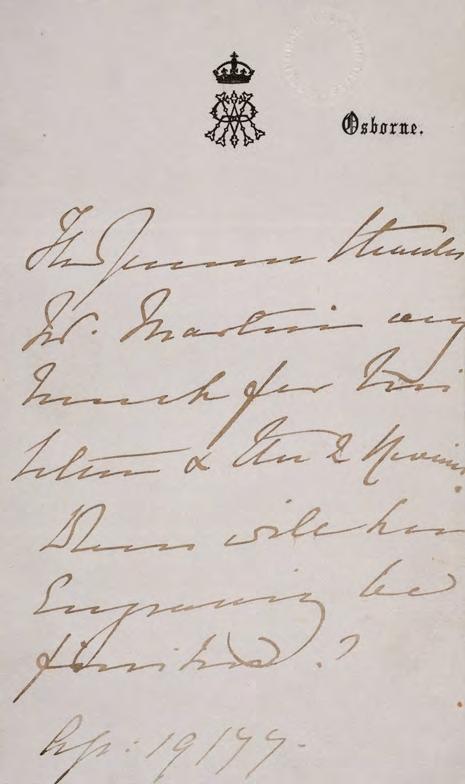 Osborne.
The Queen thanks
Mr. Martin very
much for his
letter & the 2 Reviews
When will his
Engraving be
finished.?
19/77.